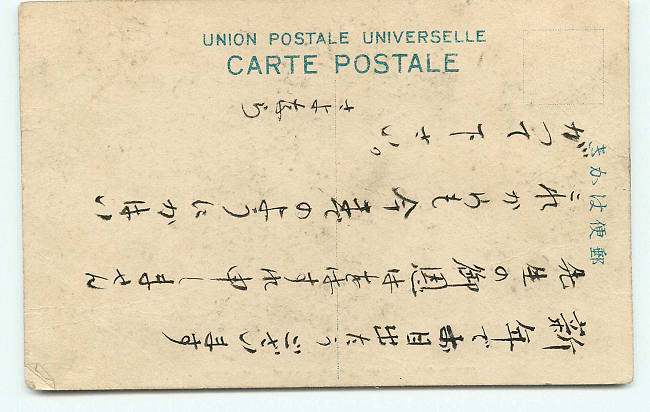 UNION POSTALE UNIVERSELLE
CARTE POSTALE
郵便はかき
新年でお目出たうございます
先生の御恩はをはすれ申しません
これからも今までのようにかはい
がつて下さい。
さよなら